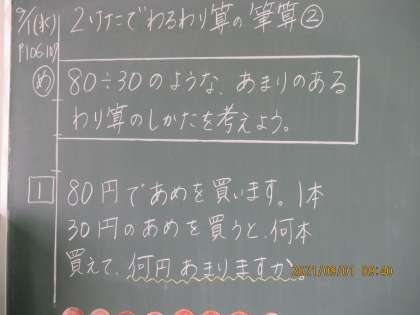 9/1(水) 2けたでわるわり算の筆算②
P106.107
め 80÷30のような、あまりのある
わり算のしかたを考えよう。
1 80円であめを買います。1本
30円のあめを買うと、何本
買えて、何円あまりますか。
2021/09/01 09:40